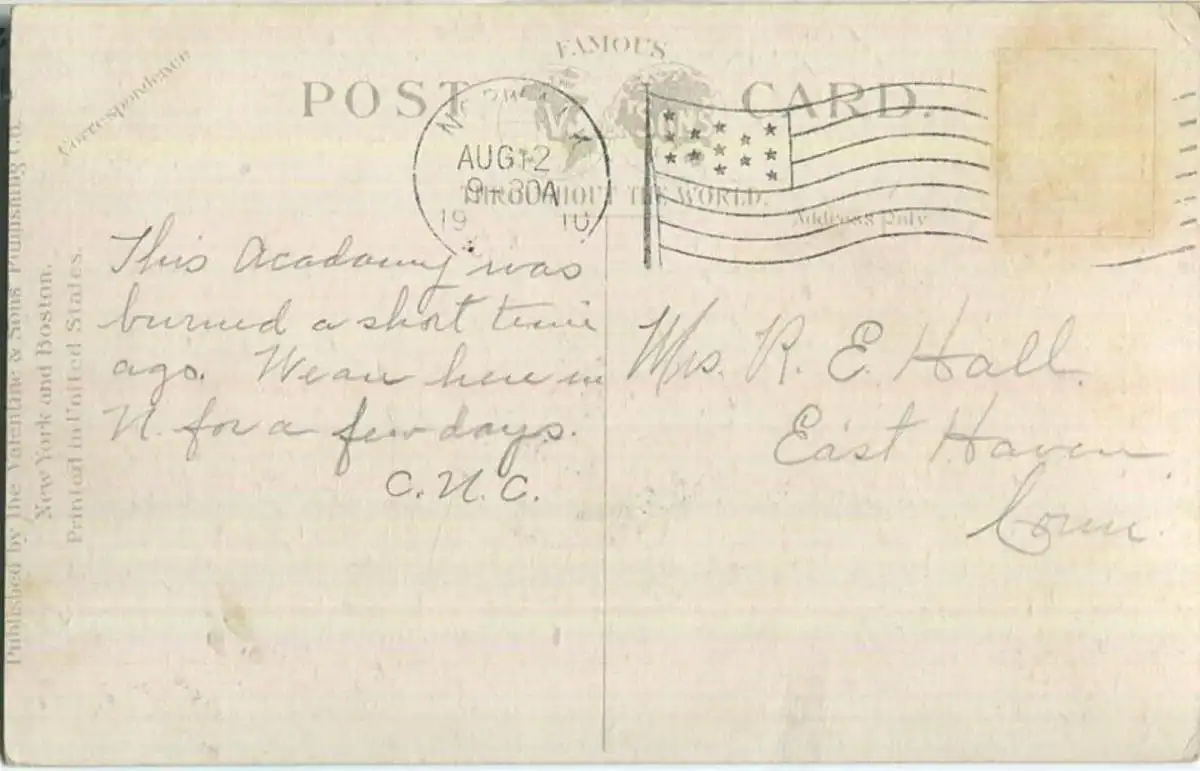 Correspondence
FAMOUS
POST CARD.
& SONS
THROUGHOUT THE WORLD.
Address Only
AUG 12
9-30A
1910
This Academy was
burned a short time
ago. We are here in
N. for a few days.
C. N. C.
Mrs. R. E. Hall.
East Haven
Conn.
Published by The Valentine & Sons Publishing Co.
New York and Boston.
Printed in United States.